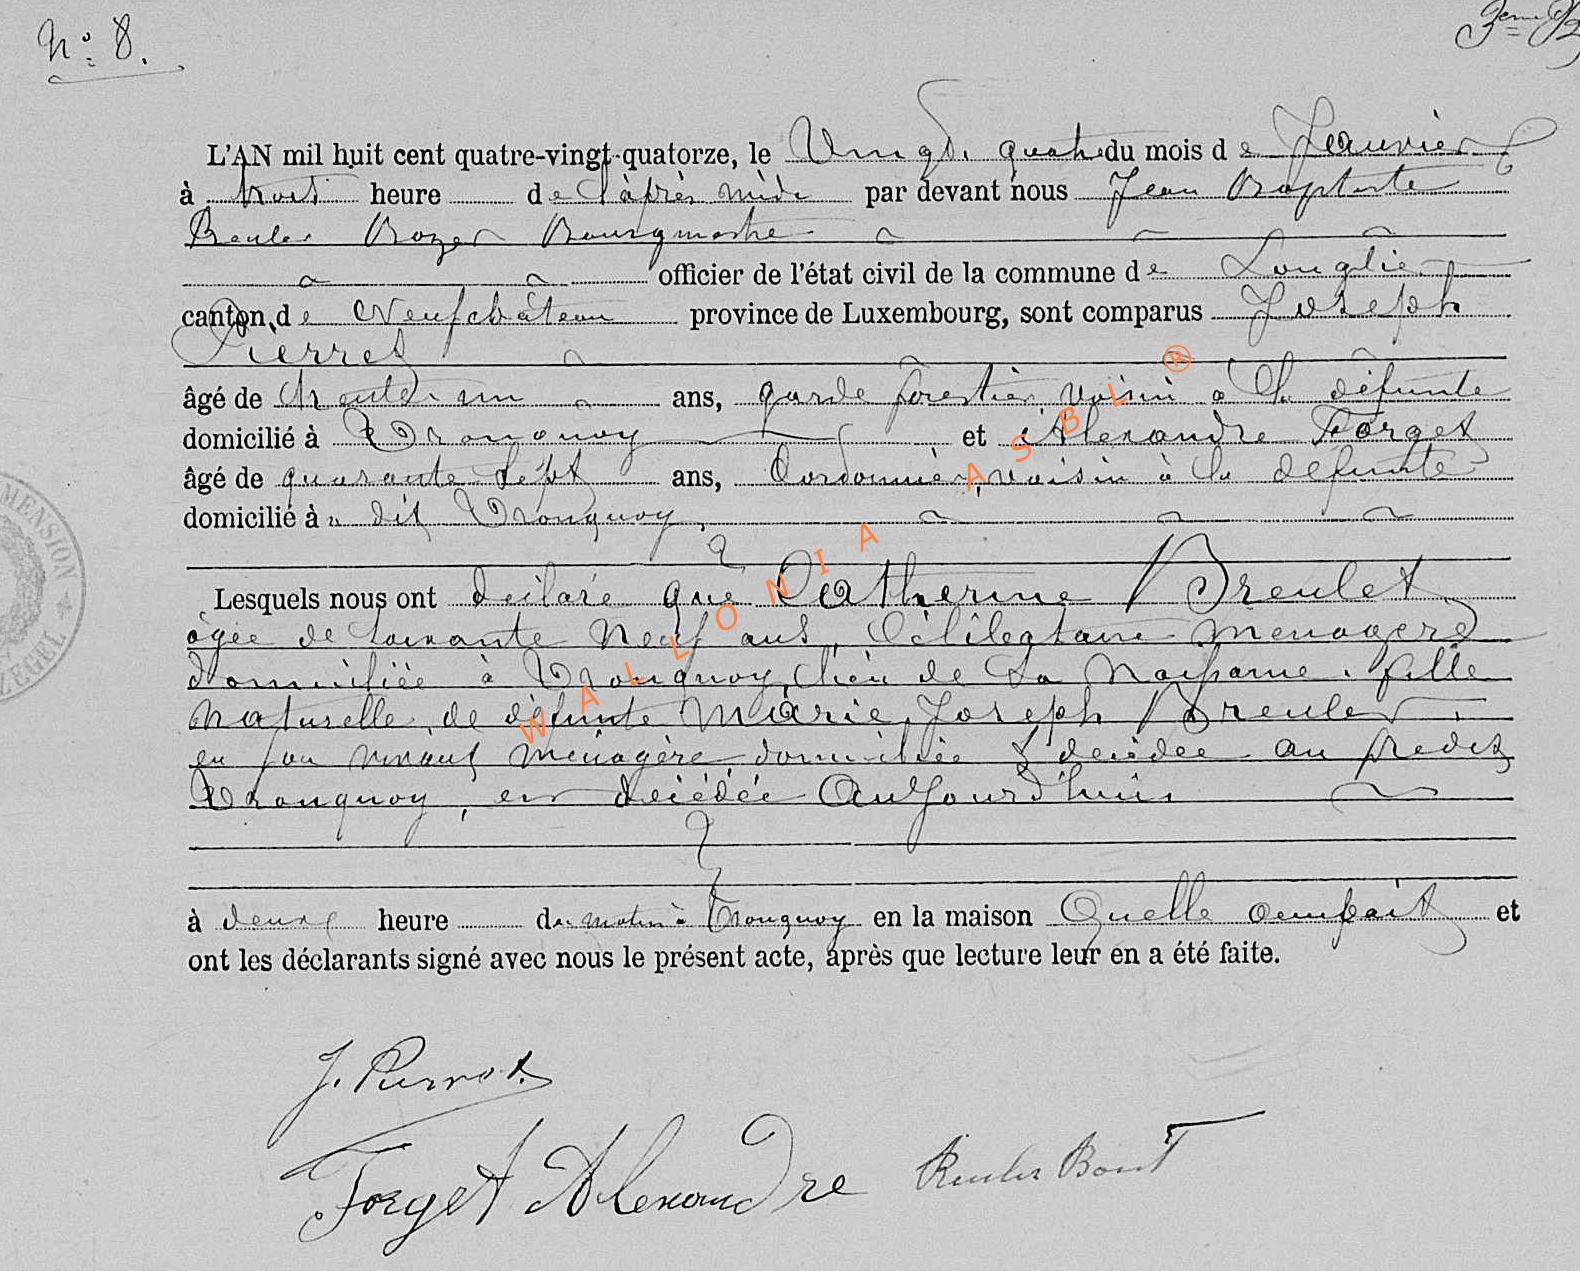 N° 8.
L'AN mil huit cent quatre-vingt-quatorze, le Vingt quatre du mois de Janvier
à trois heure de l'après midi par devant nous Jean Baptiste
Reuler Bourgmestre
officier de l'état civil de la commune de Longlier
canton de Neufchâteau province de Luxembourg, sont comparus Joseph
Pierret
âgé de trente-un ans, garde forestier, voisin à la défunte
domicilié à Tronquoy et Alexandre Forget
âgé de quarante sept ans, Cordonnier, voisin à la défunte
domicilié à dit Tronquoy,
Lesquels nous ont déclaré que Catherine Breulet
âgée de soixante neuf ans, Célibataire ménagère
domiciliée à Tronquoy, lieu de sa Naissance, fille
Naturelle de défunte Marie Joseph Breulet,
en son vivant ménagère domiciliée & décédée au predit
Tronquoy, est décédée Aujourd'huit
à deux heure du matin à Tronquoy en la maison Quelle occupait et
ont les déclarants signé avec nous le présent acte, après que lecture leur en a été faite.
J. Pierret
Forget Alexandre
WALLONIA ASBL ®
MENSION
ZEGEL